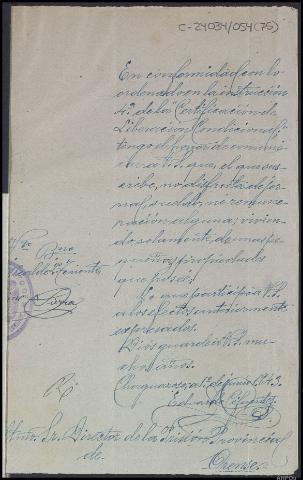 C-24034/054(75)
En conformidad con lo
ordenado en la instrucción
4ª de la "Certificación de
Liberación Condicional",
tengo el honor de comuni-
car a V.S. que, el que sus-
cribe, no disfruta de jor-
nal, sueldo, ni remune-
ración alguna, vivien-
do, solamente, de unas pe-
queñas propiedades
que posee.
Lo que participo a V.S.
a los efectos anteriormente
expresados.
Dios guarde a V.S. mu-
chos años.
a 1º de junio 1943
Eduardo
Vº Bº
Iltmo. Sr. Director de la Prisión Provincial
de.
Orense.
AHPOU